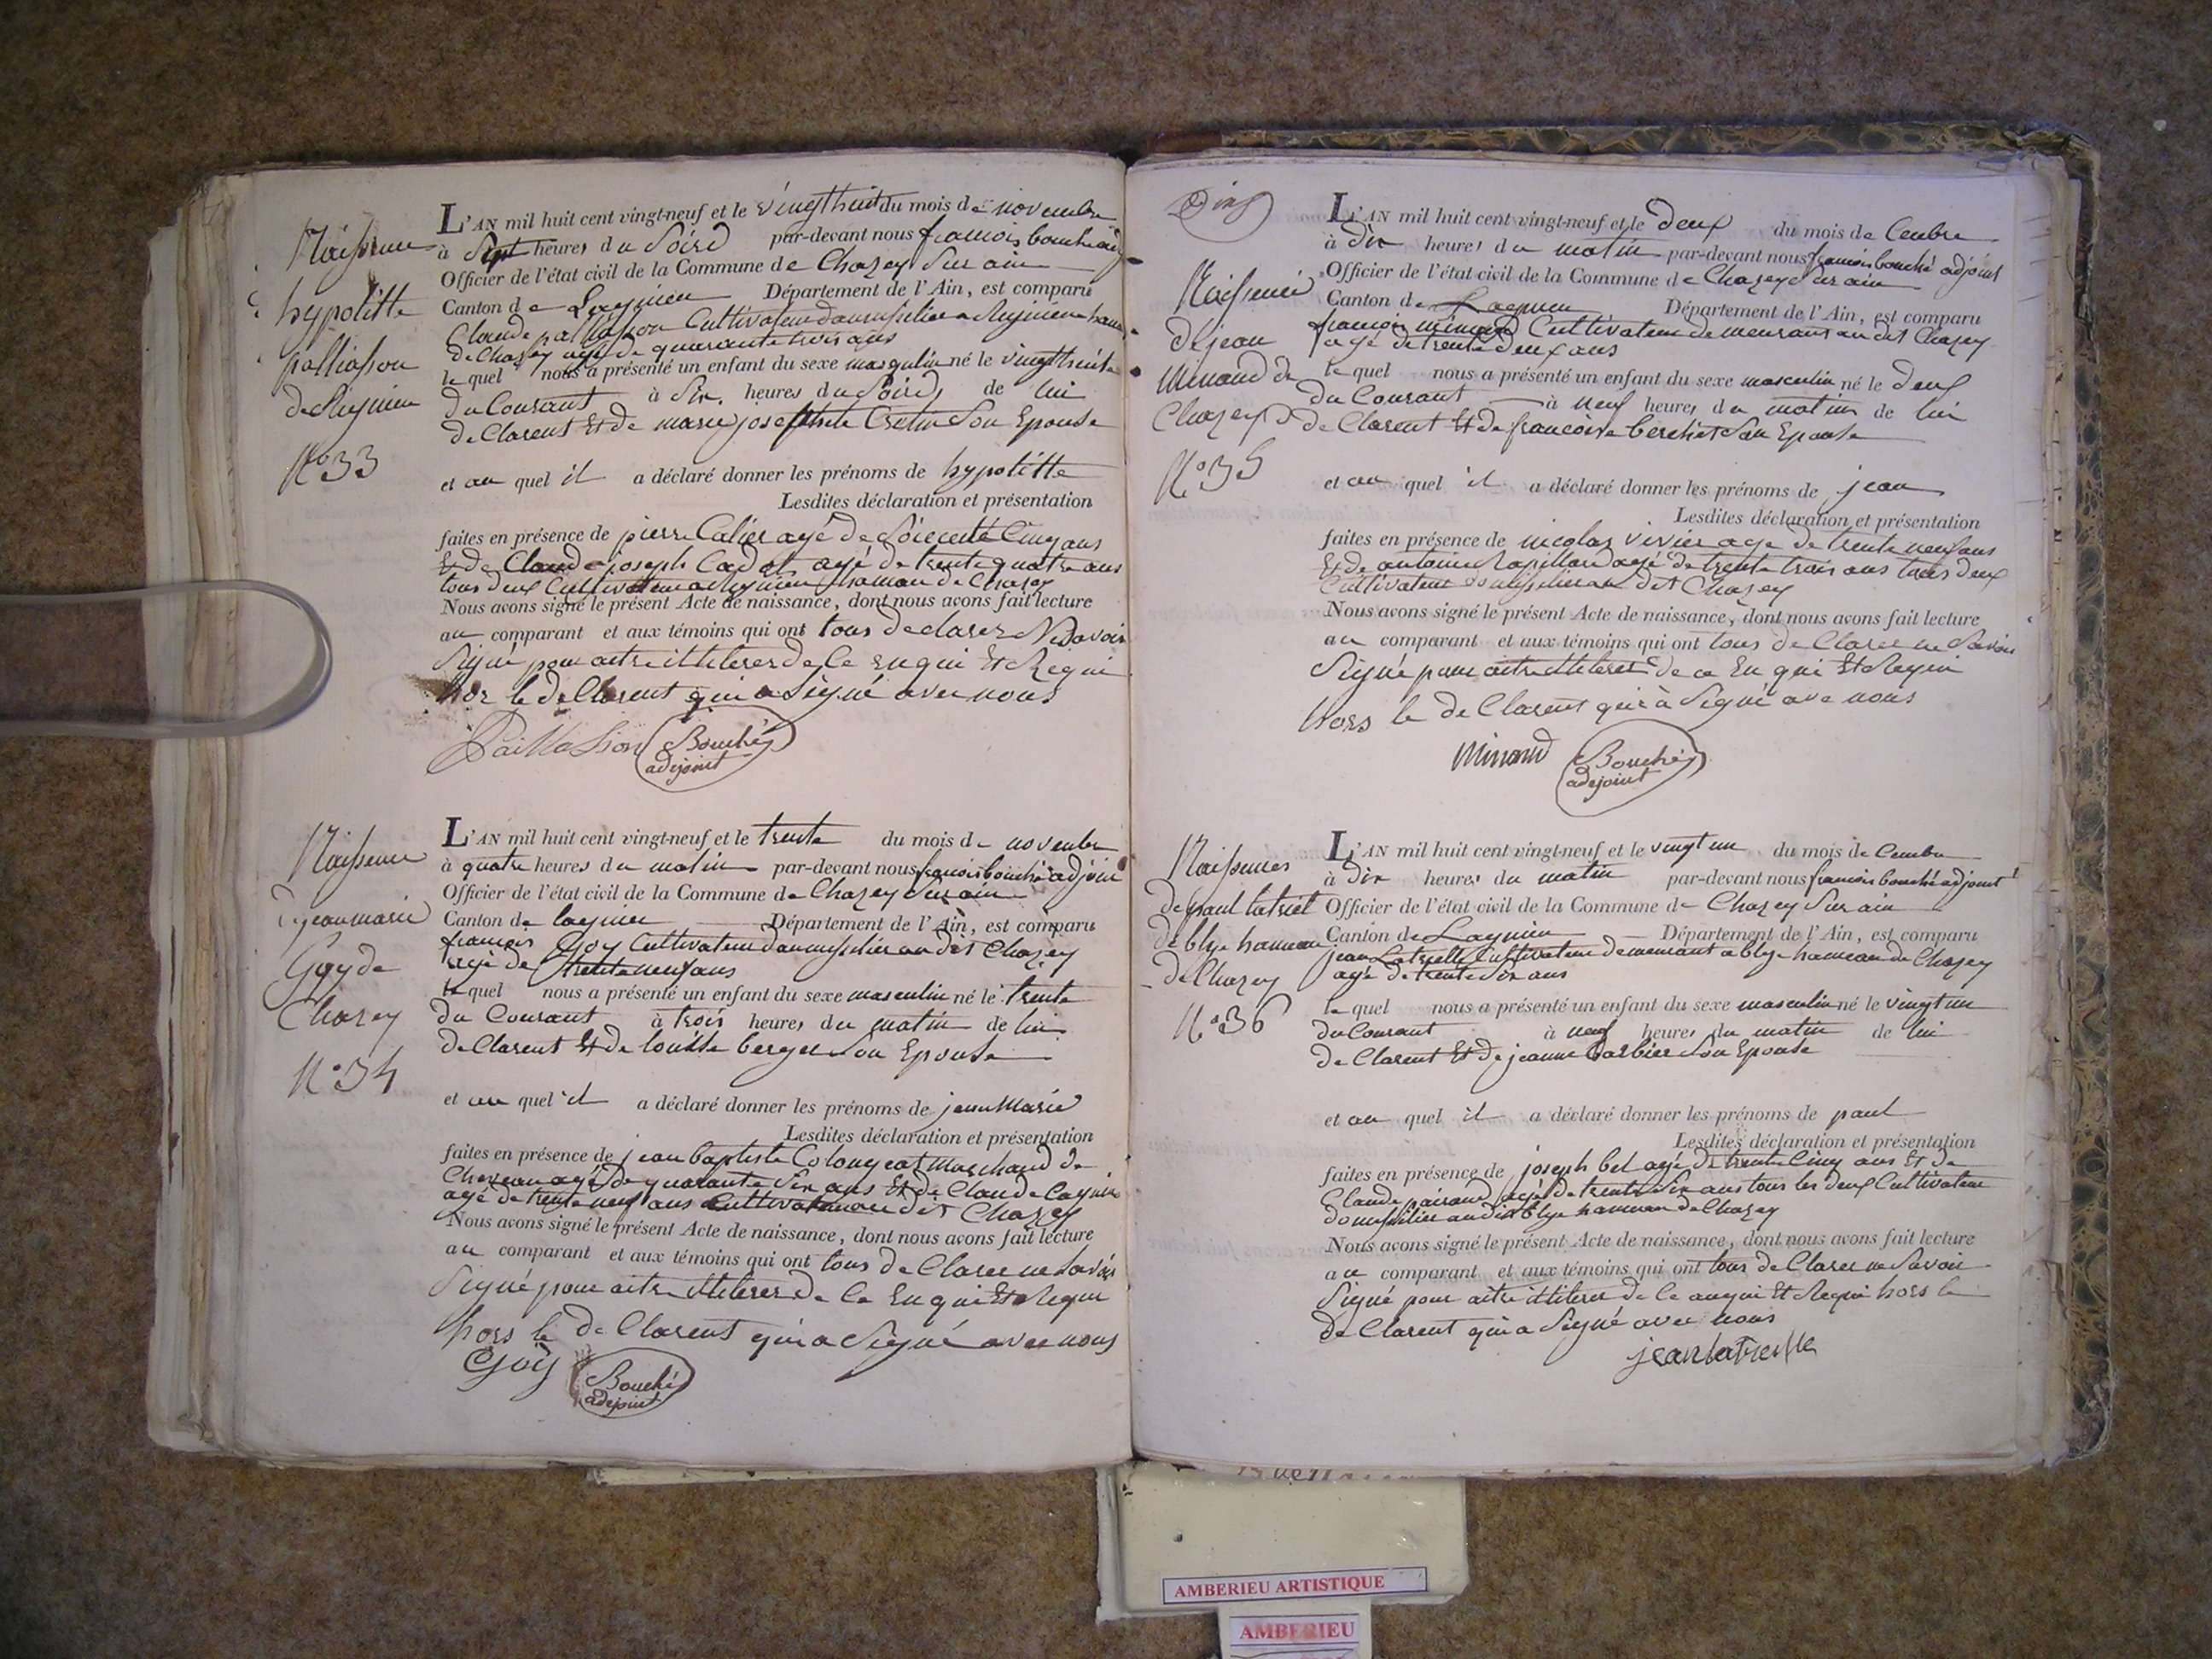 Naissence
hypolitte
palliasson
de Rignieu
N° 33
L'AN mil huit cent vingt-neuf et le vingt huit du mois de novembre
à Sept heures du Soird par-devant nous francois bouché adj
Officier de l'état civil de la Commune de Chazey Sur ain
Canton de Lagnieu Département de l'Ain, est comparu
Claude palliasson Cultivateur a Rignieu hameau
de Chazey agé de quarante trois ans
le quel nous a présenté un enfant du sexe masqulin né le vingt huite
du Courant à Six heures du Soird de lui
de Clarent Et de marie josephte Cretin Son Epouse
et au quel il a déclaré donner les prénoms de hypolitte
Lesdites déclaration et présentation
faites en présence de pierre Calier agé de Soiecente Cinq ans
Et de Claude joseph Cadot agé de trente quatre ans
tous deux Cultivateur a Rignieu hamau de Chazey
Nous avons signé le présent Acte de naissance, dont nous avons fait lecture
au comparant et aux témoins qui ont tous declarer Ne Savoir
Signé pour aitre itteleres de Ce enqui Et Requi
hor le de Clarent qui a Signé avec nous
Paillassion Bouché
adejoint
Naissence
de jean marie
Goy de
Chazey
N° 34
L'AN mil huit cent vingt-neuf et le trente du mois de novenbre
à quatre heures du matin par-devant nous francois bouché adjoint
Officier de l'état civil de la Commune de Chazey Sur ain
Canton de lagnieu Département de l'Ain, est comparu
francois Goy Cultivateur au dit Chazey
agé de trente neuf ans
le quel nous a présenté un enfant du sexe masculin né le trente
du Courant à trois heures du matin de lui
de Clarent Et de louisse berger Son Epouse
et au quel il a déclaré donner les prénoms de jean Marie
Lesdites déclaration et présentation
faites en présence de jean baptiste Colongeat Marchand de
Cheveau agé de quarante Six ans Et de Claude Cagnin
agé de trente neuf ans Cultivateur au dit Chazey
Nous avons signé le présent Acte de naissance, dont nous avons fait lecture
au comparant et aux témoins qui ont tous de Clarer ne Savoir
Signé pour aitre itteleres de Ce Enqui Et Requi
hors le de Clarent qui a Signé avec nous
Goy Bouché
adejoint
Naissence
de jean
Minand de
Chazey
N° 35
L'AN mil huit cent vingt-neuf et le deux du mois de Cenbre
à dix heures du matin par-devant nous francois bouché adjoint
Officier de l'état civil de la Commune de Chazey Sur ain
Canton de Lagnieu Département de l'Ain, est comparu
francois minand Cultivateur demeurant au dit Chazey
agé de trente deux ans
le quel nous a présenté un enfant du sexe masculin né le deux
du Courant à neuf heures du matin de lui
de Clarent Et de francoise berchet Son Epouse
et au quel il a déclaré donner les prénoms de jean
Lesdites déclaration et présentation
faites en présence de nicolas vivier age de trente neuf ans
Et de antoine Rapillard agé de trente trois ans tous deux
Cultivateur au dit Chazey
Nous avons signé le présent Acte de naissance, dont nous avons fait lecture
au comparant et aux témoins qui ont tous de Claree ne Savoir
Signé pour aitre itteleres de ce Enqui Et Requi
hors le de Clarent qui à Signé ave nous
Minand Bouché
adejoint
Naissences
de paul latriel
de blye hameau
de Chazey
N° 36
L'AN mil huit cent vingt-neuf et le vingt un du mois de Cembre
à dix heures du matin par-devant nous francois bouché adjoint
Officier de l'état civil de la Commune de Chazey Sur ain
Canton de Lagnieu Département de l'Ain, est comparu
jean Latrielle Cultivateur demeurant a blye hameau de Chazey
agé de trente Six ans
le quel nous a présenté un enfant du sexe masculin né le vingt un
du Courant à neuf heures du matin de lui
de Clarent Et de jeanne barbier Son Epouse
et au quel il a déclaré donner les prénoms de paul
Lesdites déclaration et présentation
faites en présence de joseph bel agé de trente Cinq ans Et de
Claude pairand agé de trente Six ans tous les deux Cultivateur
au dit blye hameau de Chazey
Nous avons signé le présent Acte de naissance, dont nous avons fait lecture
au comparant et aux témoins qui ont tous de Clarer ne Savoir
Signé pour aitre itteleres de Ce anqui Et Requi hors le
de Clarent qui a Signé avec nous
jean latrielle
AMBERIEU ARTISTIQUE
AMBERIEU